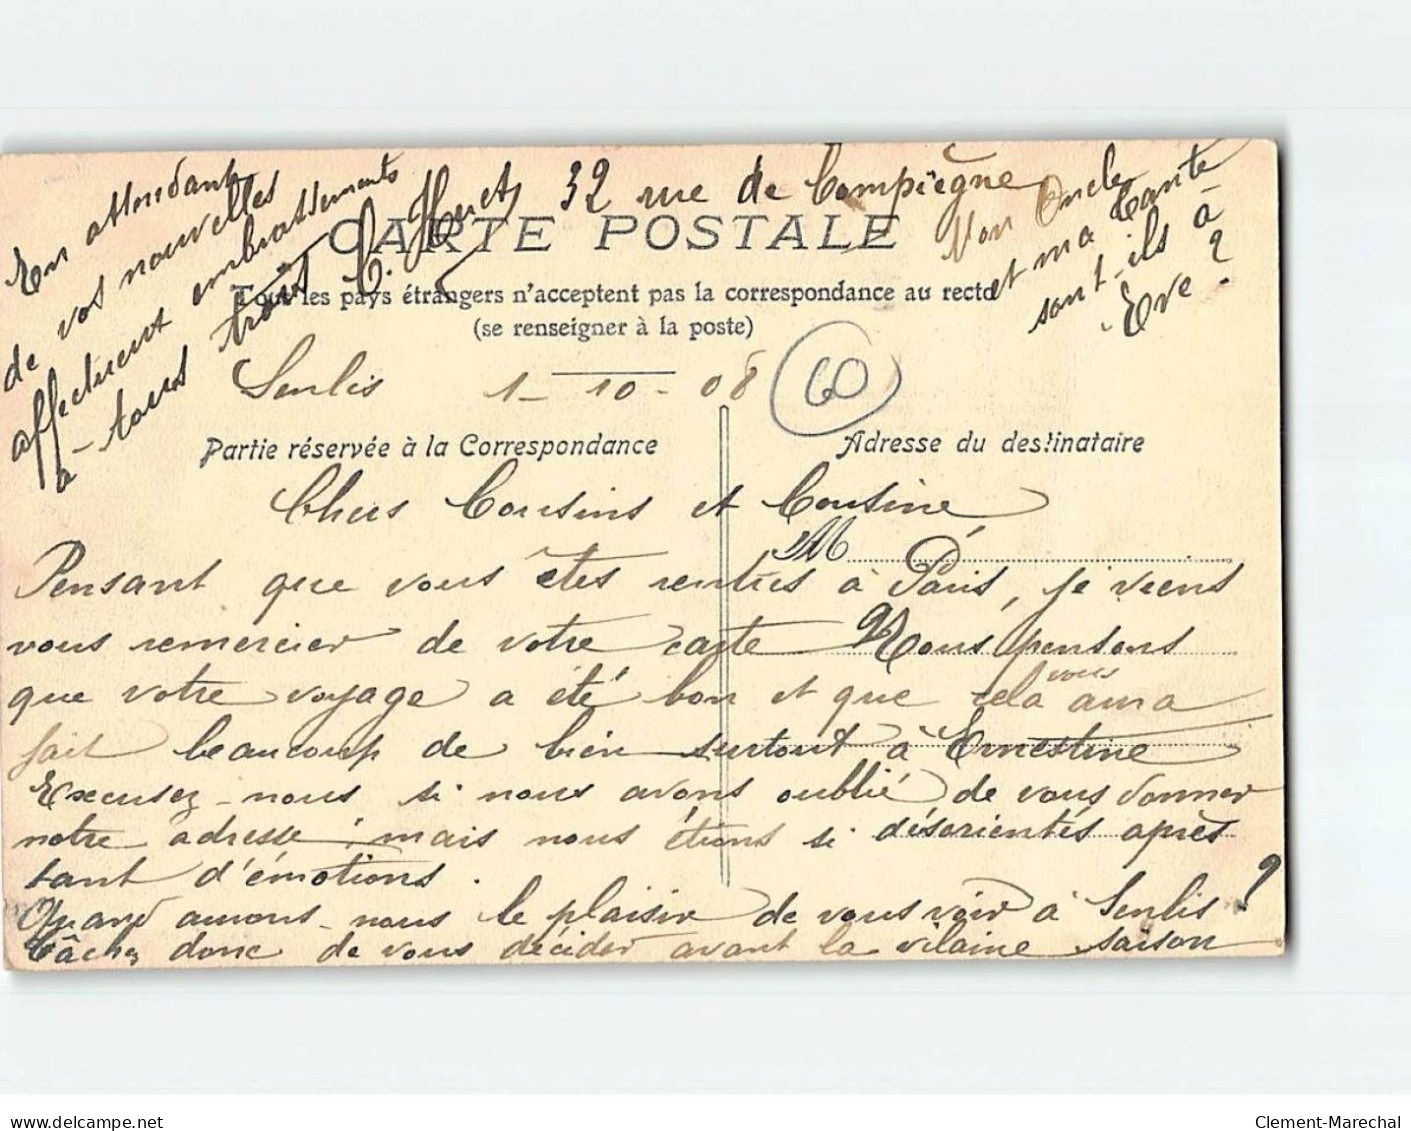 En attendant
de vos nouvelles
affectueux embrassements
à tous trois C. Huet, 32 rue de Compiègne
Mon Oncle
et ma Tante
sont-ils à
Eve ?
CARTE POSTALE
Tous les pays étrangers n'acceptent pas la correspondance au recto
(se renseigner à la poste)
Senlis 1-10-08
60
Partie réservée à la Correspondance
Adresse du destinataire
Chers Cousins et Cousine,
M
Pensant que vous êtes rentrés à Paris, je viens
vous remercier de votre carte Nous pensons
que votre voyage a été bon et que cela vous aura
fait beaucoup de bien surtout à Ernestine
Excusez-nous si nous avons oublié de vous donner
notre adresse, mais nous étions si désorientés après
tant d'émotions.
Quand aurons-nous le plaisir de vous voir à Senlis ?
Tâchez donc de vous décider avant la vilaine saison
delcampe.net
Clement-Marechal